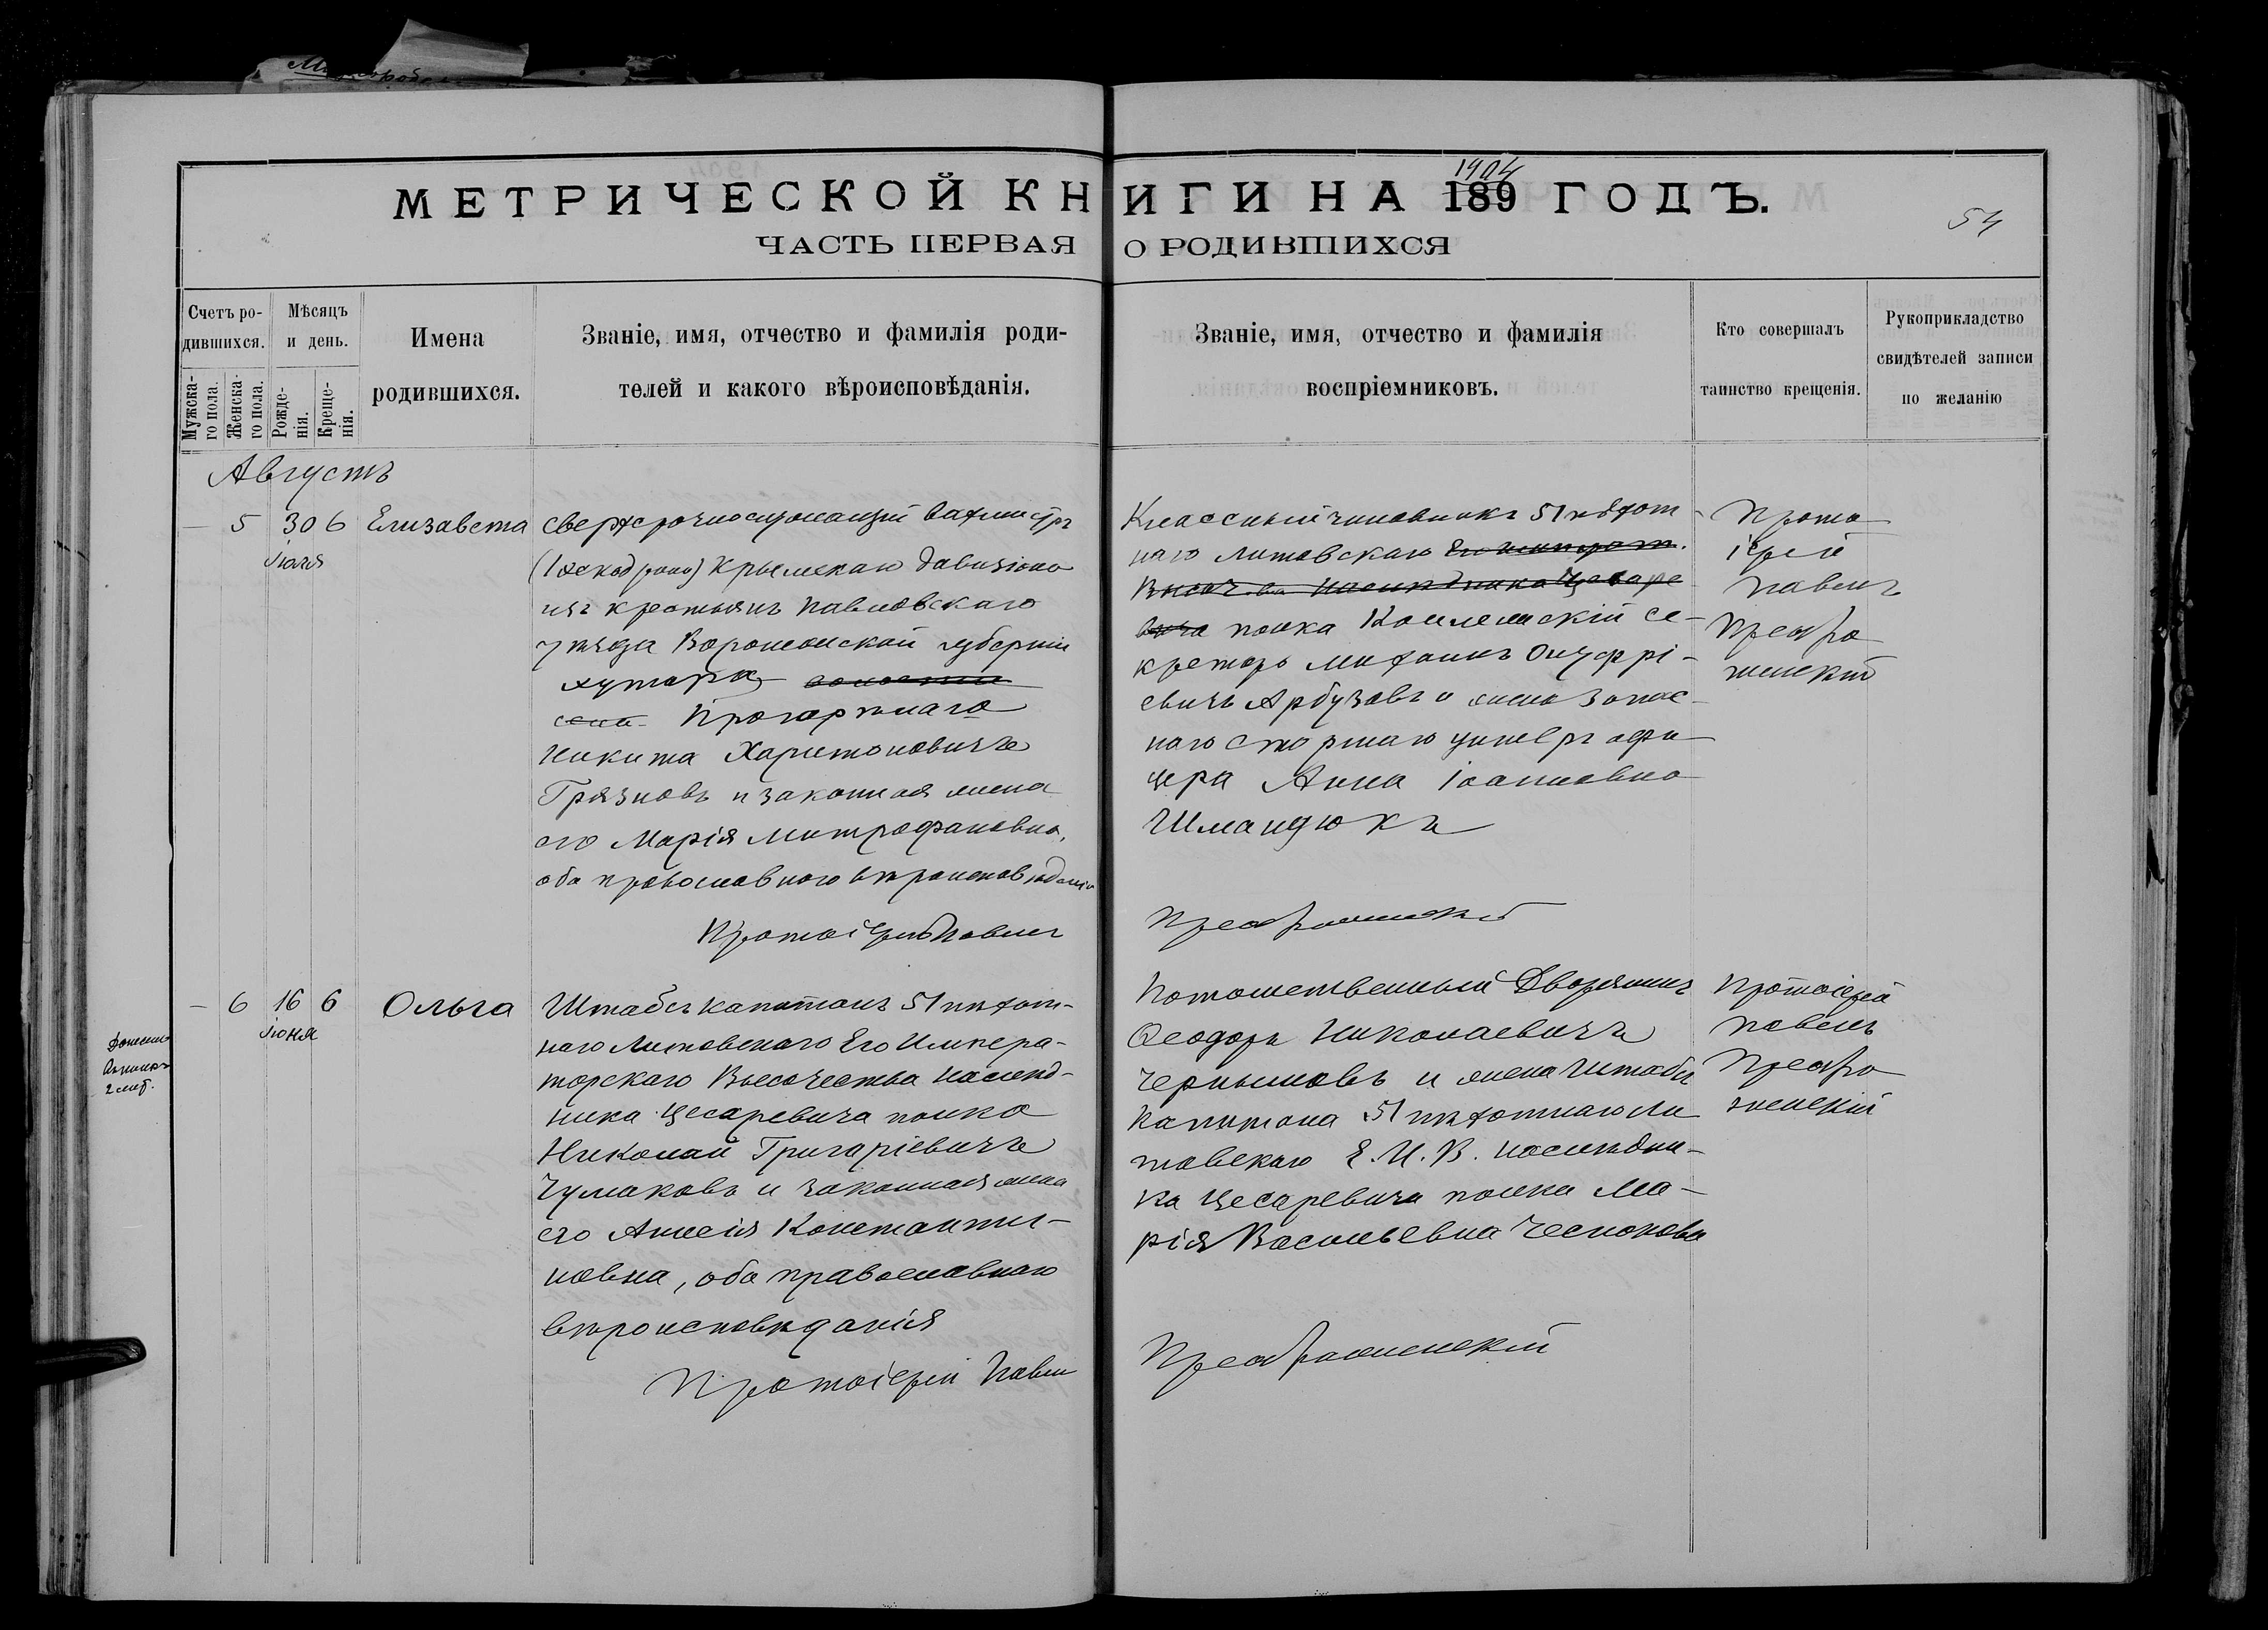 МЕТРИЧЕСКОЙ КНИГИ НА 189 ГОДЪ.
1904
54
ЧАСТЬ ПЕРВАЯ О РОДИВШИХСЯ
Счетъ ро-
дившихся.
Мужска-
го пола.
Женска-
го пола.
Мѣсяцъ
и день.
Рожде-
нія.
Креще-
нія.
Имена
родившихся.
Званіе, имя, отчество и фамилія роди-
телей и какого вѣроисповѣданія.
Званіе, имя, отчество и фамилія
воспріемниковъ.
Кто совершалъ
таинство крещенія.
Рукоприкладство
свидѣтелей записи
по желанію
Августъ
— 5 30 6 Елизавета
Іюля
Сверхсрочнослужащій Вахмистръ
(1 эскадрона) Крымскаго Дивизіона
изъ крестьянъ Павловскаго
уѣзда Воронежской губерніи
хутора волости
села
Никита Харитоновичъ
Грязновъ и законная жена
его Марія Митрофановна,
оба православнаго вѣроисповѣданія
Протоіерей Павелъ
Классный чиновникъ 51 пѣхот-
наго Литовскаго Его Императ.
Высоч-ва Наслѣдника Цесаре
вича полка Коллежскій се-
кретарь Михаилъ Онуфрі-
евичъ Арбузовъ и жена запас-
наго старшаго унтеръ офи-
цера Анна Іоанновна
Шмандюкъ
Преображенскій
Прото
іерей
Павелъ
Преобра
женскій
— 6 16 6 Ольга
Іюня
Штабсъ Капитанъ 51 пѣхот-
наго Литовскаго Его Импера-
торскаго Высочества Наслѣд-
ника Цесаревича полка
Николай Григоріевичъ
Чумаковъ и законная жена
его Анисія Константи-
новна, оба православнаго
вѣроисповѣданія
Протоіерей Павел
Потомственный Дворянинъ
Ѳеодоръ Николаевичъ
Чернышовъ и жена Штабсъ
Капитана 51 пѣхотнаго Ли
товскаго Е. И. В. Наслѣдни-
ка Цесаревича полка Ма-
рія Васильевна Чеснокова
Преображенскій
Протоіерей
Павелъ
Преобра
женскій